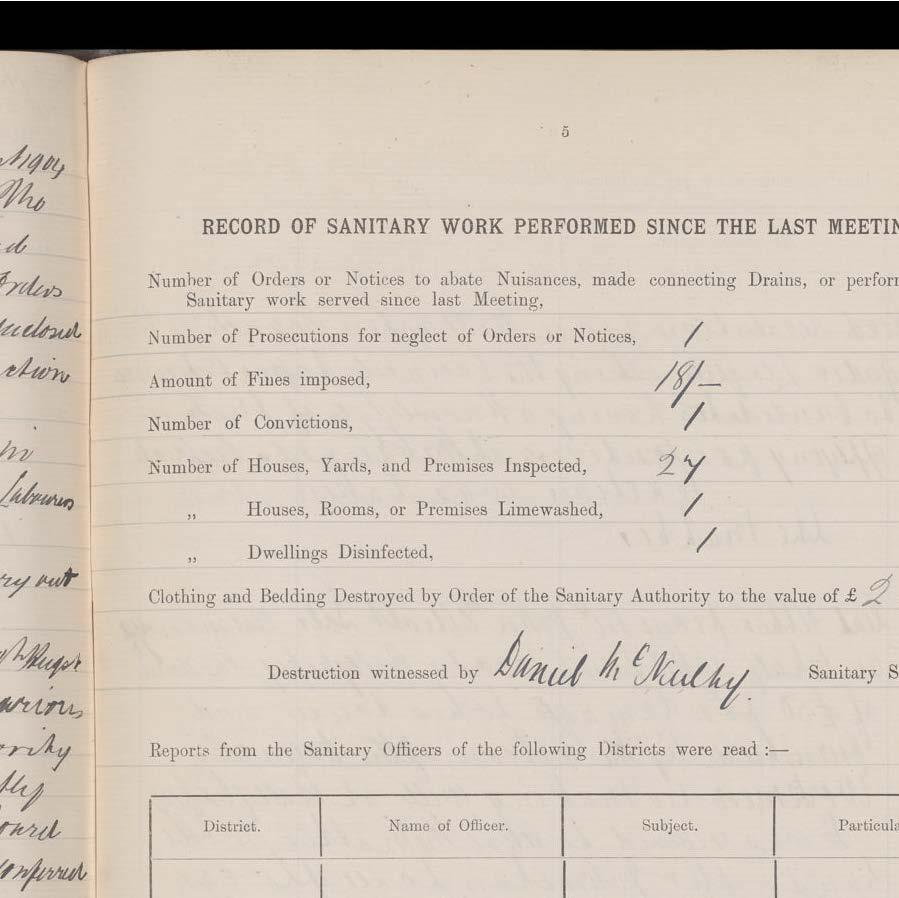 5
RECORD OF SANITARY WORK PERFORMED SINCE THE LAST MEETIN
Number of Orders or Notices to abate Nuisances, made connecting Drains, or perform
Sanitary work served since last Meeting,
Number of Prosecutions for neglect of Orders or Notices, 1
Amount of Fines imposed, 18/–
Number of Convictions, 1
Number of Houses, Yards, and Premises Inspected, 27
„ Houses, Rooms, or Premises Limewashed, 1
„ Dwellings Disinfected, 1
Clothing and Bedding Destroyed by Order of the Sanitary Authority to the value of £ 2
Destruction witnessed by Daniel McNulhy. Sanitary S
Reports from the Sanitary Officers of the following Districts were read :—
District. Name of Officer. Subject. Particula
1904
Who
ed
Orders
enclosed
ction
Labourers
ry out
arious
ority
tly
oard
conferred